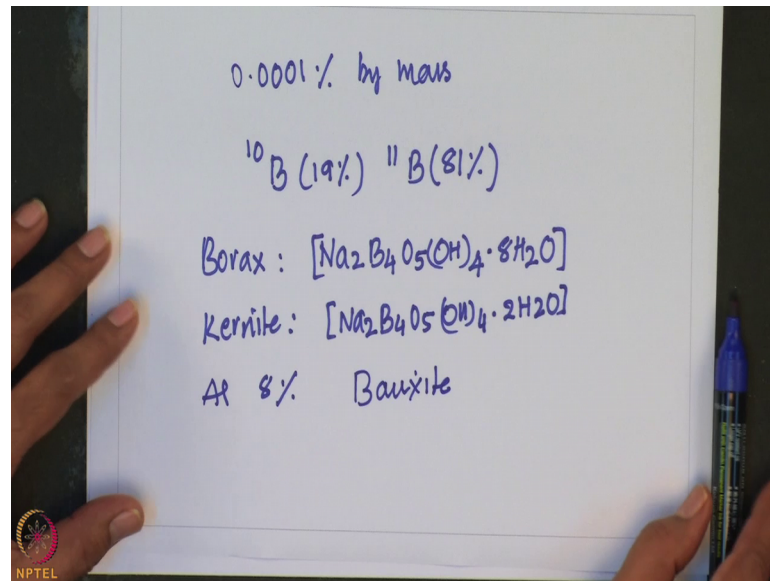 0.0001% by mass
¹⁰B (19%) ¹¹B (81%)
Borax : [Na2B4O5(OH)4·8H2O]
Kernite : [Na2B4O5(OH)4·2H2O]
Al 8% Bauxite
NPTEL